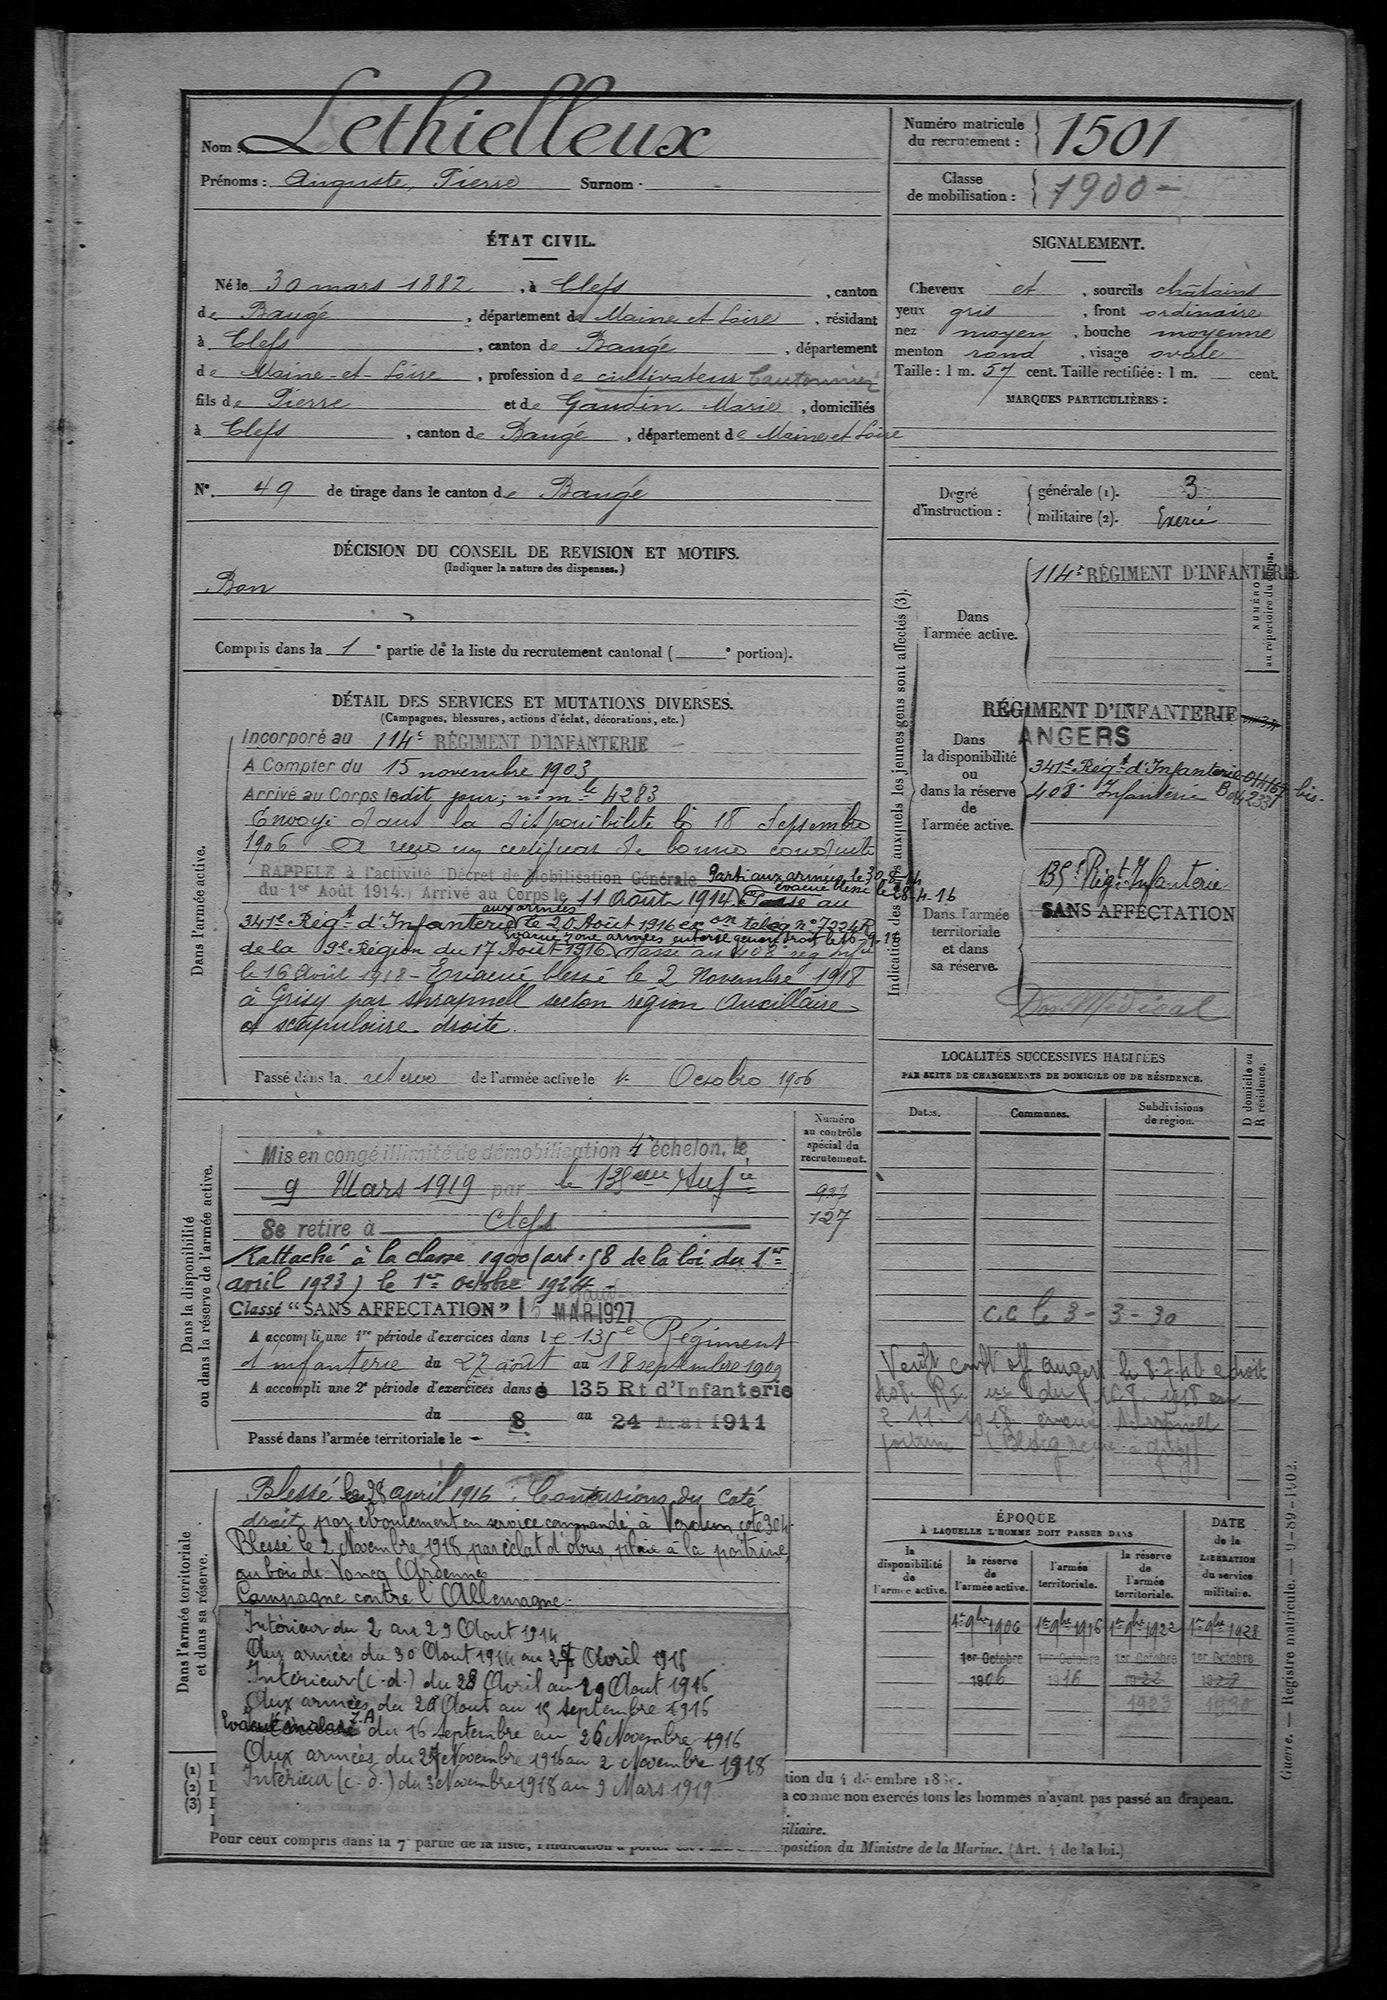 Nom : Lethielleux
Prénoms : Auguste, Pierre Surnom :
Numéro matricule du recrutement : 1501
Classe de mobilisation : 1900
ÉTAT CIVIL.
Né le 30 mars 1882, à Clefs, canton
de Baugé, département de Maine et Loire, résidant
à Clefs, canton de Baugé, département
de Maine-et-Loire, profession de cultivateur Cantonnier
fils de Pierre et de Gaudin Marie, domiciliés
à Clefs, canton de Baugé, département de Maine et Loire
SIGNALEMENT.
Cheveux et, sourcils châtains
yeux gris, front ordinaire
nez moyen, bouche moyenne
menton rond, visage ovale
Taille : 1 m. 57 cent. Taille rectifiée : 1 m. cent.
MARQUES PARTICULIÈRES :
N°. 49 de tirage dans le canton de Baugé
Degré d'instruction : générale (1). 3
militaire (2). Exercé
DÉCISION DU CONSEIL DE REVISION ET MOTIFS.
(Indiquer la nature des dispenses.)
Bon
Compris dans la 1e partie de la liste du recrutement cantonal ( e portion).
DÉTAIL DES SERVICES ET MUTATIONS DIVERSES.
(Campagnes, blessures, actions d'éclat, décorations, etc.)
Dans l'armée active.
Incorporé au 114e RÉGIMENT D'INFANTERIE
A Compter du 15 novembre 1903
Arrivé au Corps ledit jour; n° mle 4283
Envoyé dans la disponibilité le 18 Septembre
1906 A reçu un certificat de bonne conduite
RAPPELE à l'activité (Décret de Mobilisation Générale Parti aux armées le 30-8-14
évacué blessé le 28-4-16
du 1er Août 1914.) Arrivé au Corps le 11 août 1914. Passé au
aux armées
341e Régt d'Infanterie le 20 Août 1916 en on téleg n° 7224R
évacué zone armées entorse genou droit le 16-9-16
de la 9e Région du 17 Août 1916 Passé au 408 reg Infie
le 16 Avril 1918 - Evacué blessé le 2 Novembre 1918
à Grisy par shrapnell seton région Auxillaire
et scapulaire droite.
Passé dans la réserve de l'armée active le 1er Octobre 1906
Indication des corps auxquels les jeunes gens sont affectés (3).
NUMÉRO au répertoire du corps.
Dans l'armée active.
114e RÉGIMENT D'INFANTERIE
Dans la disponibilité ou dans la réserve de l'armée active.
RÉGIMENT D'INFANTERIE
ANGERS
341e Régt d'Infanterie
408e Infanterie
Dans l'armée territoriale et dans sa réserve.
135e Régt Infanterie
SANS AFFECTATION
Dos. Médical
LOCALITÉS SUCCESSIVES HABITÉES
PAR SUITE DE CHANGEMENTS DE DOMICILE OU DE RÉSIDENCE.
Dates. Communes. Subdivisions de région. D domicile ou R résidence.
C.C le 3-3-30
Dans la disponibilité ou dans la réserve de l'armée active.
Numéro au contrôle spécial du recrutement.
927
127
Mis en congé illimité de démobilisation 4e échelon, le
9 Mars 1919 par le 135ème Infie
Se retire à Clefs
Rattaché à la classe 1900 (art. 58 de la loi du 1er
avril 1923) le 1er octobre 1924
Classé "SANS AFFECTATION" 15 MAR 1927
A accompli une 1re période d'exercices dans le 135e Régiment
d'infanterie du 27 août au 18 septembre 1909
A accompli une 2e période d'exercices dans le 135 Rt d'Infanterie
du 8 au 24 Mai 1911
Passé dans l'armée territoriale le
Dans l'armée territoriale et dans sa réserve.
Blessé le 28 avril 1916 : Contusions du coté
droit par éboulement en service commandé à Verdun cote 304.
Blessé le 2 Novembre 1918, par éclat d'obus, plaie à la poitrine,
au bois de Voncq (Ardennes
Campagne contre l'Allemagne.
Intérieur du 2 au 29 Aout 1914
Aux armées du 30 Aout 1914 au 27 Avril 1916
Intérieur (c.d.) du 28 Avril au 19 Aout 1916
Aux armées du 20 Aout au 15 septembre 1916
Evacué malade Z.A du 16 septembre au 26 Novembre 1916
Aux armées du 27 Novembre 1916 au 2 Novembre 1918
Intérieur (c.d.) du 3 Novembre 1918 au 9 Mars 1919
ÉPOQUE
À LAQUELLE L'HOMME DOIT PASSER DANS
DATE de la LIBÉRATION du service militaire.
la disponibilité de l'armée active. la réserve de l'armée active. l'armée territoriale. la réserve de l'armée territoriale.
1er 9bre 1906 1er 9bre 1916 1er 9bre 1922 1er 9bre 1928
1er Octobre 1er Octobre 1er Octobre 1er Octobre
1906 1916 1922 1928
1923 1930
(1)
(2)
(3)
tion du 4 décembre 18
a comme non exercés tous les hommes n'ayant pas passé au drapeau.
ciliaire.
Pour ceux compris dans la 7e partie de la liste, l'indication à porter
sposition du Ministre de la Marine. (Art. 4 de la loi.)
Guerre. — Registre matricule. — 9-89-1902.